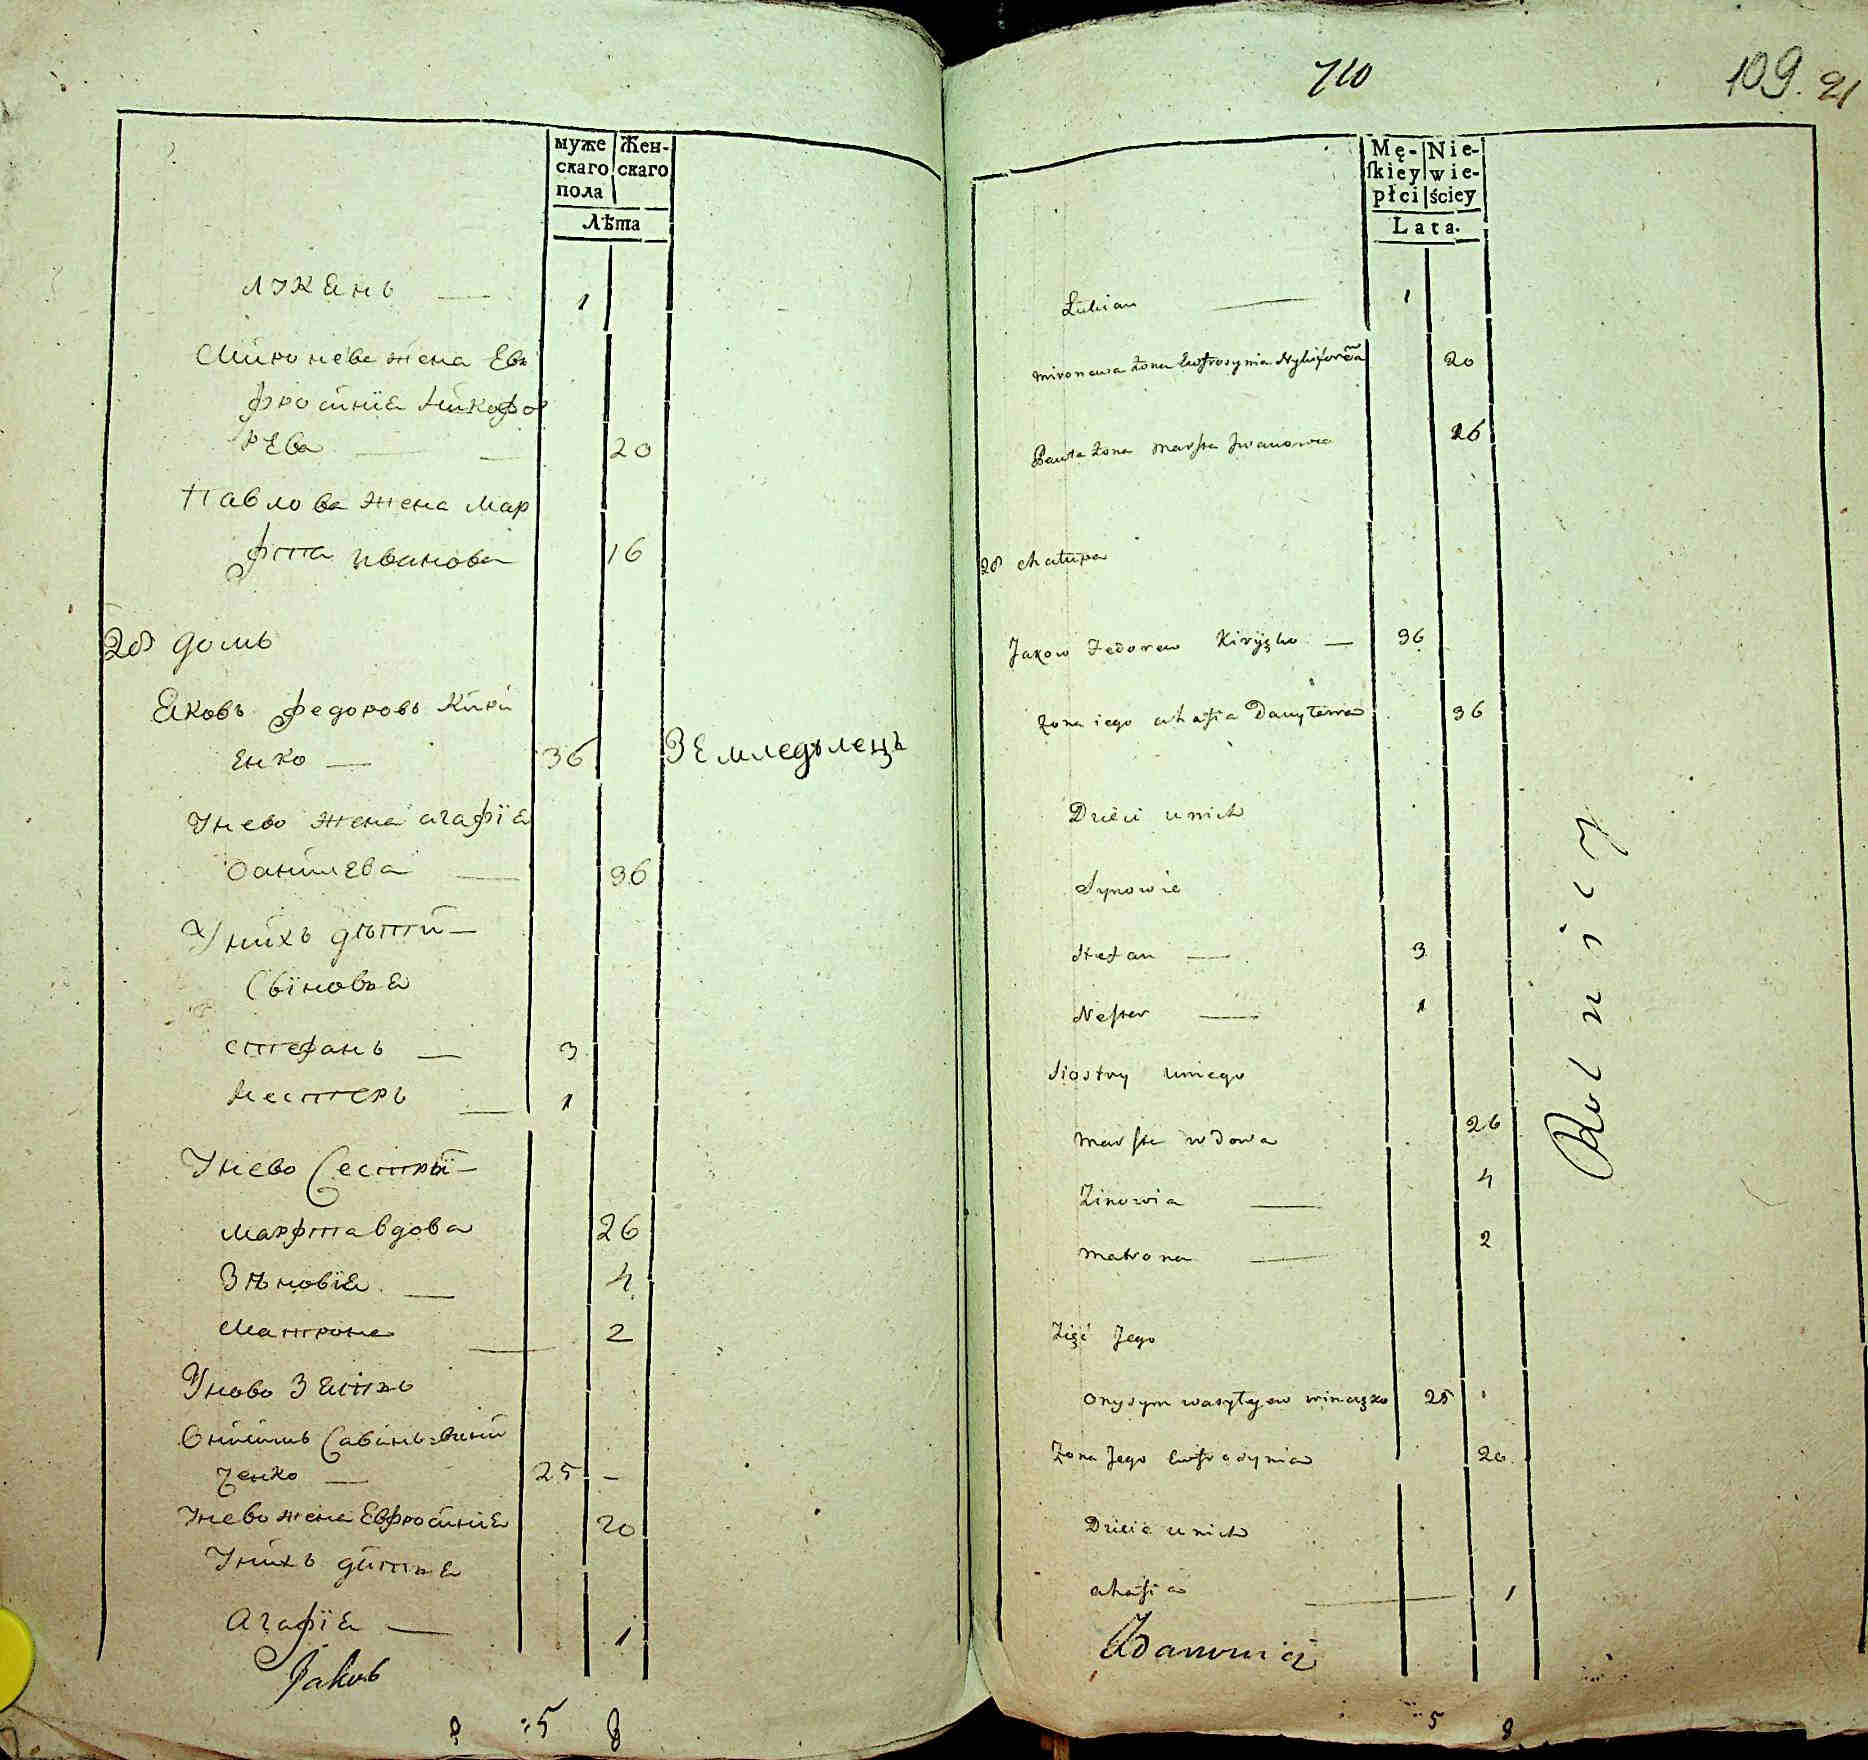 муже
скаго
пола
Жен-
скаго
Лѣта
Лукянь — 1
Миронева жена Евъ
фросинїя Никофо
рева — — 20
Павлова жена Мар
фта иванова 16
28 домъ
Яковъ федоровъ Кири
енко — 36 Земледѣлецъ
Унево жена агафїя
данилева — 36
Унихъ дѣти —
Сыновья
стефанъ — 3
Нестеръ — 1
Унево Сестры —
марфта вдова 26
Зѣновїя — 4
Матрона — 2
Уново Зять
Онисимъ Савинъ вини
ченко — 25 —
Унево жена Евфросинїя 20
Унихъ дитя
Агафїя — 1
Jakub
5 8
710
109. 21
Mę-
skiey
płci
Nie-
wie-
ściey
Lata.
Łukian — 1
Mironewa żona Eufrosynia Nykiforowa 20
Pawła żona Marfta Jwanowa 16
28 chałupa
Jakow Fedorow Kiryęko — 36
żona iego ahafia Danyłewa 36
Dzieci u nich
Synowie
Stefan — 3
Nester — 1
Siostry u niego
Marfta wdowa 26
Zinowia — 4
Matrona — 2
Zięć Jego
Onysym wasyłyew winczęko 25
żona Jego Eufrosynia 20
Dziecie u nich
ahafia — 1
Rolnicy
Adamowicz
5 8